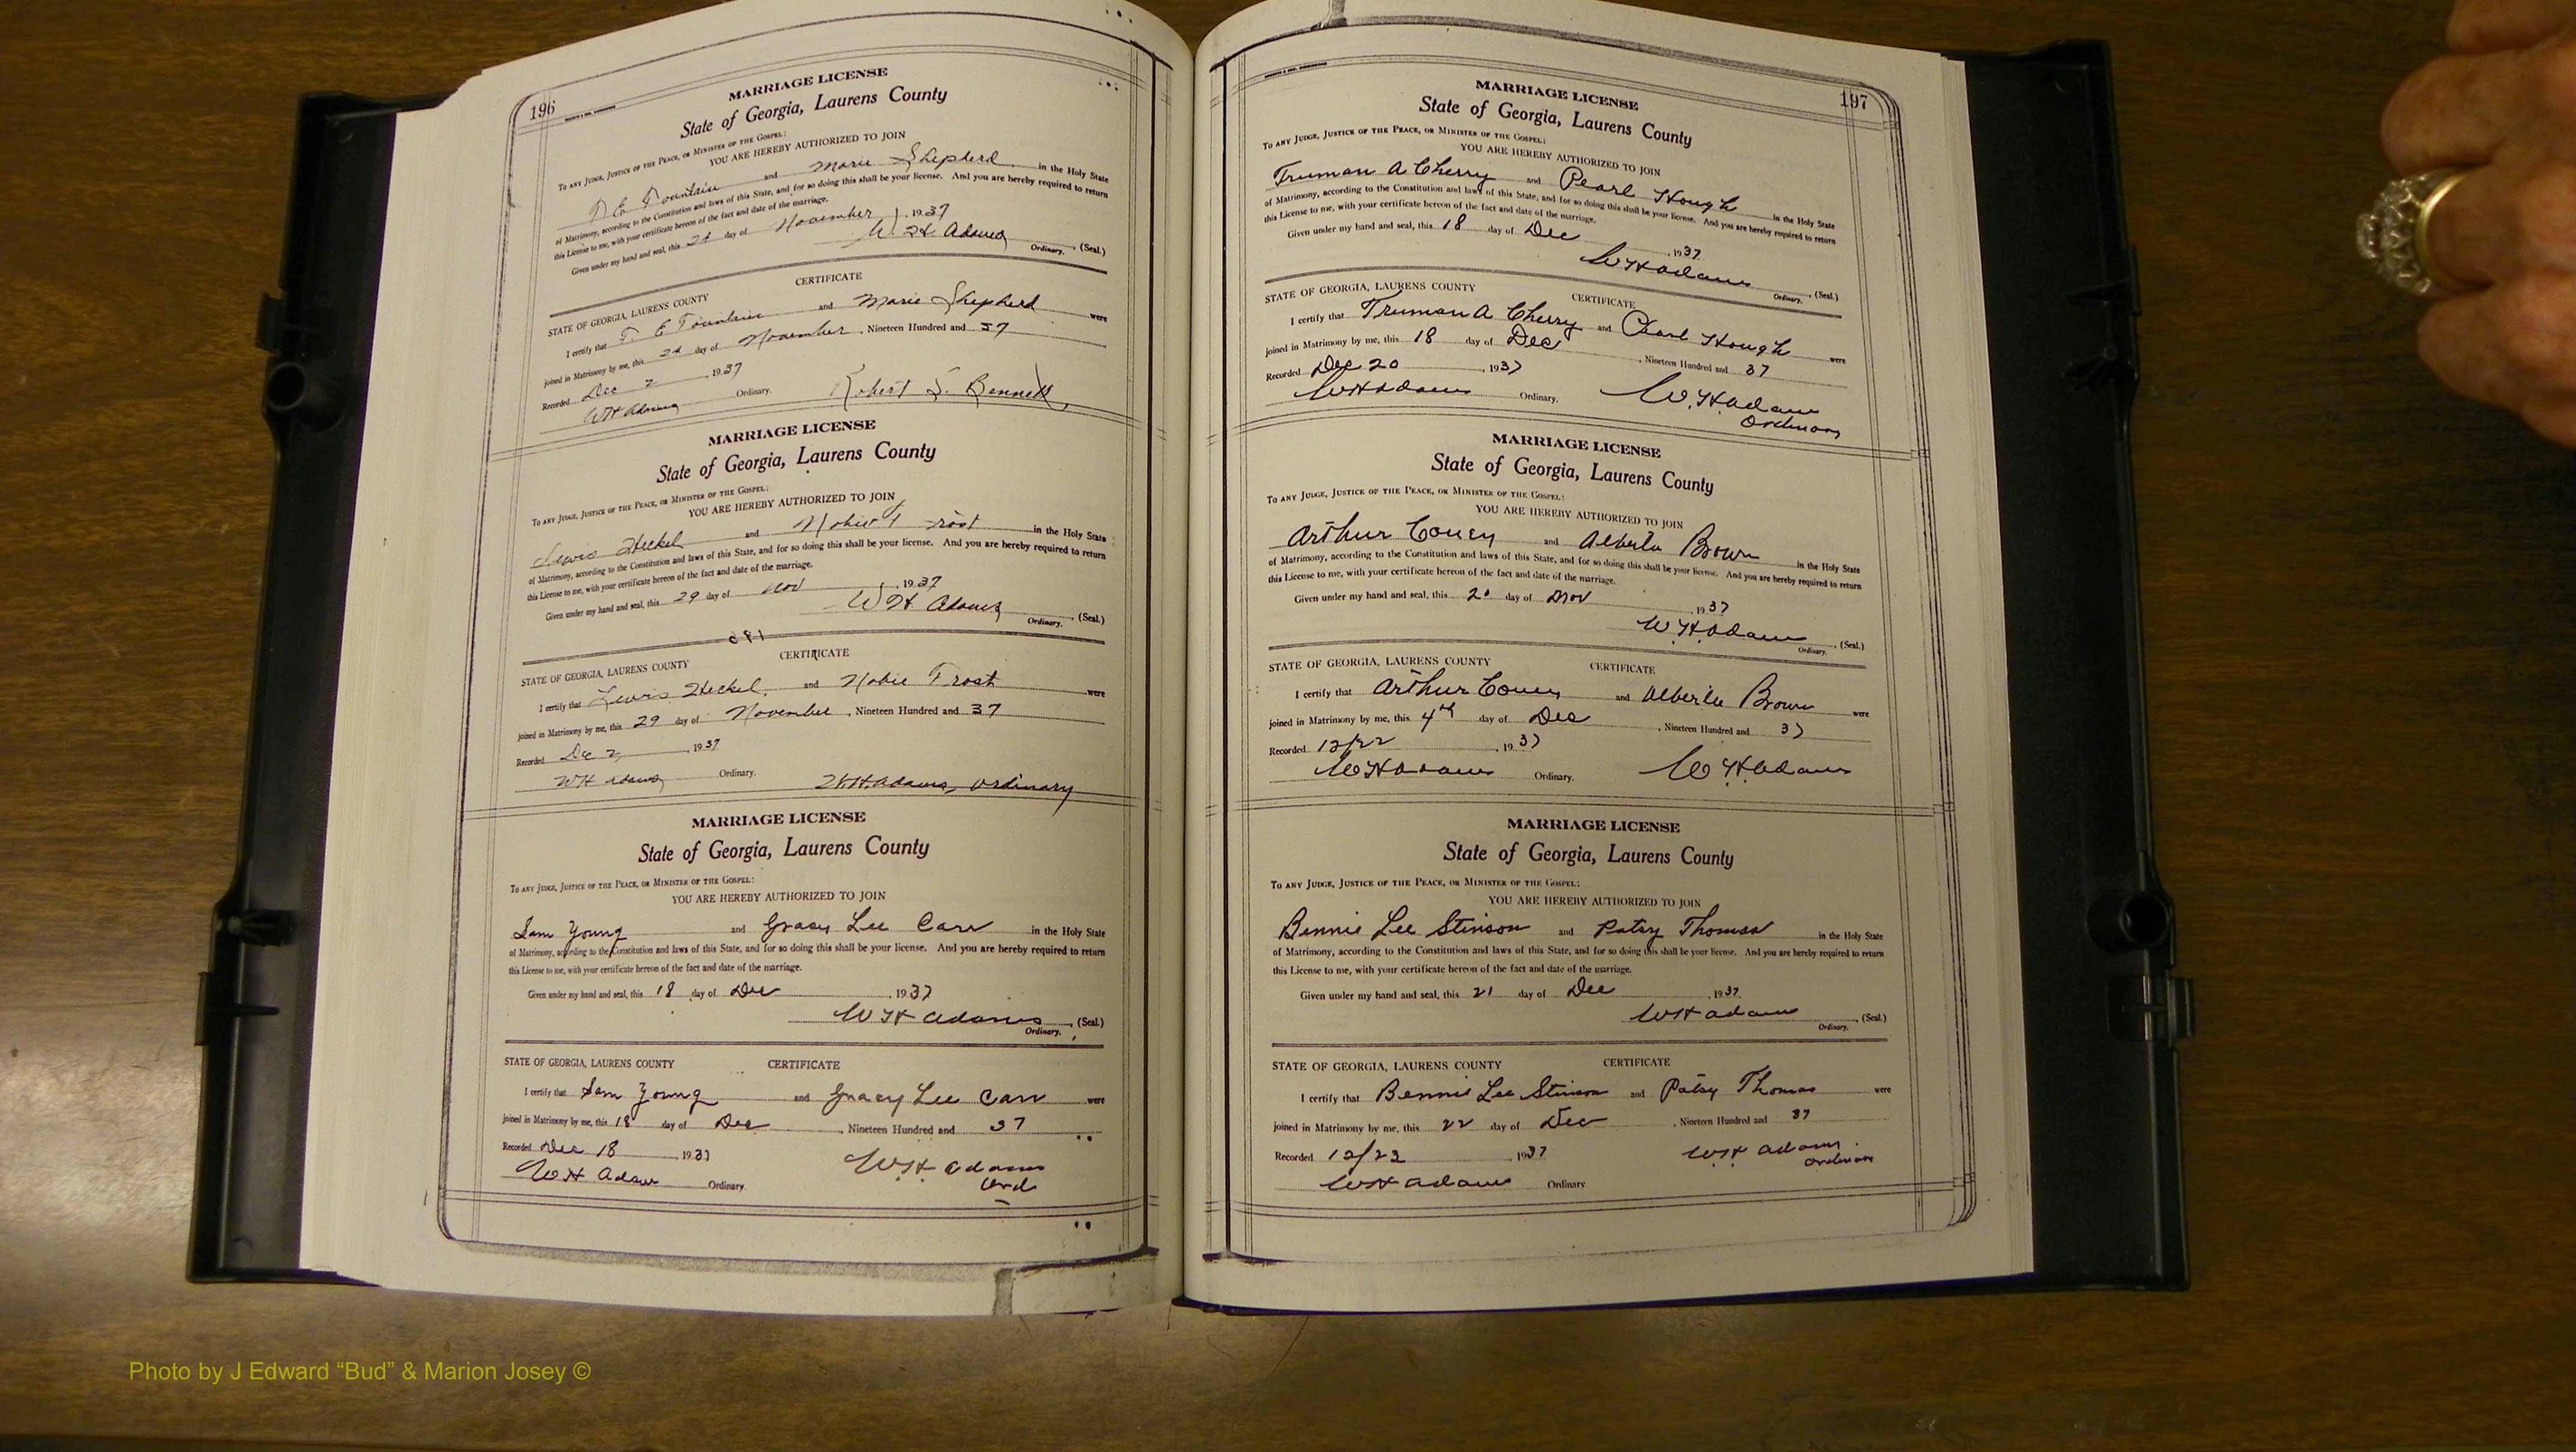 196
MARRIAGE LICENSE
State of Georgia, Laurens County
To any Judge, Justice of the Peace, or Minister of the Gospel:
YOU ARE HEREBY AUTHORIZED TO JOIN
E Fountain and Marie Shepherd in the Holy State
of Matrimony, according to the Constitution and laws of this State, and for so doing this shall be your license. And you are hereby required to return
this License to me, with your certificate hereon of the fact and date of the marriage.
Given under my hand and seal, this day of November, 1937
W. H. Adams (Seal.)
Ordinary.
CERTIFICATE
STATE OF GEORGIA, LAURENS COUNTY
I certify that T. E Fountain and Marie Shepherd were
joined in Matrimony by me, this day of November, Nineteen Hundred and 37
Recorded Dec 2, 1937
WH Adams Ordinary. Robert S. Bennett
MARRIAGE LICENSE
State of Georgia, Laurens County
To any Judge, Justice of the Peace, or Minister of the Gospel:
YOU ARE HEREBY AUTHORIZED TO JOIN
Lewis Heckel and in the Holy State
of Matrimony, according to the Constitution and laws of this State, and for so doing this shall be your license. And you are hereby required to return
this License to me, with your certificate hereon of the fact and date of the marriage.
Given under my hand and seal, this 29 day of Nov, 1937
W H Adams (Seal.)
Ordinary.
CERTIFICATE
STATE OF GEORGIA, LAURENS COUNTY
I certify that Lewis Heckel and were
joined in Matrimony by me, this 29 day of November, Nineteen Hundred and 37
Recorded Dec 2, 1937
WH Adams Ordinary. W.H. Adams, Ordinary
MARRIAGE LICENSE
State of Georgia, Laurens County
To any Judge, Justice of the Peace, or Minister of the Gospel:
YOU ARE HEREBY AUTHORIZED TO JOIN
Sam Young and Gracy Lee Carr in the Holy State
of Matrimony, according to the Constitution and laws of this State, and for so doing this shall be your license. And you are hereby required to return
this License to me, with your certificate hereon of the fact and date of the marriage.
Given under my hand and seal, this 18 day of Dec, 1937
W H Adams, (Seal.)
Ordinary.
STATE OF GEORGIA, LAURENS COUNTY CERTIFICATE
I certify that Sam Young and Gracy Lee Carr were
joined in Matrimony by me, this 18 day of Dec, Nineteen Hundred and 37
Recorded Dec 18, 1937
W H Adams Ordinary. W.H. Adams
Ord
197
MARRIAGE LICENSE
State of Georgia, Laurens County
To any Judge, Justice of the Peace, or Minister of the Gospel:
YOU ARE HEREBY AUTHORIZED TO JOIN
Truman A Cherry and Pearl Hough in the Holy State
of Matrimony, according to the Constitution and laws of this State, and for so doing this shall be your license. And you are hereby required to return
this License to me, with your certificate hereon of the fact and date of the marriage.
Given under my hand and seal, this 18 day of Dec, 1937.
W H Adams, (Seal.)
Ordinary.
STATE OF GEORGIA, LAURENS COUNTY CERTIFICATE
I certify that Truman A Cherry and Pearl Hough were
joined in Matrimony by me, this 18 day of Dec, Nineteen Hundred and 37
Recorded Dec 20, 1937
W H Adams Ordinary. W. H. Adams
Ordinary
MARRIAGE LICENSE
State of Georgia, Laurens County
To any Judge, Justice of the Peace, or Minister of the Gospel:
YOU ARE HEREBY AUTHORIZED TO JOIN
Arthur Coney and Alberta Brown in the Holy State
of Matrimony, according to the Constitution and laws of this State, and for so doing this shall be your license. And you are hereby required to return
this License to me, with your certificate hereon of the fact and date of the marriage.
Given under my hand and seal, this 20 day of Nov, 1937
W. H. Adams, (Seal.)
Ordinary.
STATE OF GEORGIA, LAURENS COUNTY CERTIFICATE
I certify that Arthur Coney and Alberta Brown were
joined in Matrimony by me, this 4th day of Dec, Nineteen Hundred and 37
Recorded 12/22, 1937
W H Adams Ordinary. W. H. Adams
MARRIAGE LICENSE
State of Georgia, Laurens County
To any Judge, Justice of the Peace, or Minister of the Gospel:
YOU ARE HEREBY AUTHORIZED TO JOIN
Bennie Lee Stinson and Patsy Thomas in the Holy State
of Matrimony, according to the Constitution and laws of this State, and for so doing this shall be your license. And you are hereby required to return
this License to me, with your certificate hereon of the fact and date of the marriage.
Given under my hand and seal, this 21 day of Dec, 1937.
W H Adams, (Seal.)
Ordinary.
STATE OF GEORGIA, LAURENS COUNTY CERTIFICATE
I certify that Bennie Lee Stinson and Patsy Thomas were
joined in Matrimony by me, this 22 day of Dec, Nineteen Hundred and 37
Recorded 12/23, 1937 W.H Adams.
Ordinary
W H Adams Ordinary
Photo by J Edward “Bud” & Marion Josey ©